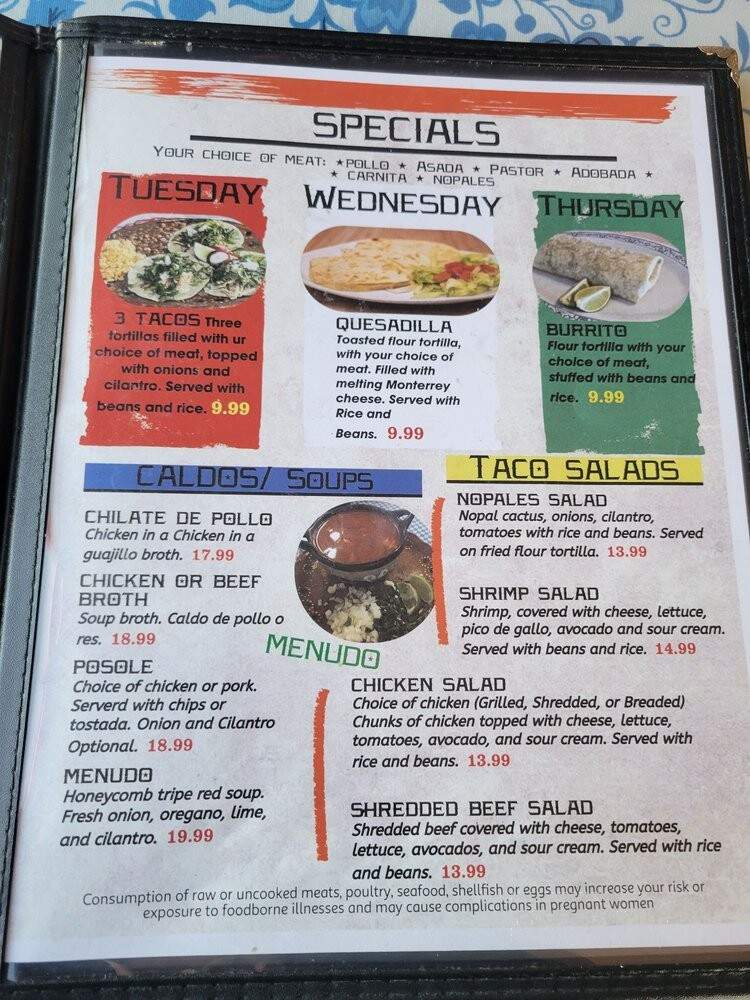 SPECIALS
YOUR CHOICE OF MEAT: ★POLLO ★ ASADA ★ PASTOR ★ ADOBADA ★
★ CARNITA ★ NOPALES
TUESDAY
3 TACOS Three
tortillas filled with ur
choice of meat, topped
with onions and
cilantro. Served with
beans and rice. 9.99
WEDNESDAY
QUESADILLA
Toasted flour tortilla,
with your choice of
meat. Filled with
melting Monterrey
cheese. Served with
Rice and
Beans. 9.99
THURSDAY
BURRITO
Flour tortilla with your
choice of meat,
stuffed with beans and
rice. 9.99
CALDOS/ SOUPS
CHILATE DE POLLO
Chicken in a Chicken in a
guajillo broth. 17.99
CHICKEN OR BEEF
BROTH
Soup broth. Caldo de pollo o
res. 18.99
MENUDO
POSOLE
Choice of chicken or pork.
Serverd with chips or
tostada. Onion and Cilantro
Optional. 18.99
MENUDO
Honeycomb tripe red soup.
Fresh onion, oregano, lime,
and cilantro. 19.99
TACO SALADS
NOPALES SALAD
Nopal cactus, onions, cilantro,
tomatoes with rice and beans. Served
on fried flour tortilla. 13.99
SHRIMP SALAD
Shrimp, covered with cheese, lettuce,
pico de gallo, avocado and sour cream.
Served with beans and rice. 14.99
CHICKEN SALAD
Choice of chicken (Grilled, Shredded, or Breaded)
Chunks of chicken topped with cheese, lettuce,
tomatoes, avocado, and sour cream. Served with
rice and beans. 13.99
SHREDDED BEEF SALAD
Shredded beef covered with cheese, tomatoes,
lettuce, avocados, and sour cream. Served with rice
and beans. 13.99
Consumption of raw or uncooked meats, poultry, seafood, shellfish or eggs may increase your risk or
exposure to foodborne illnesses and may cause complications in pregnant women